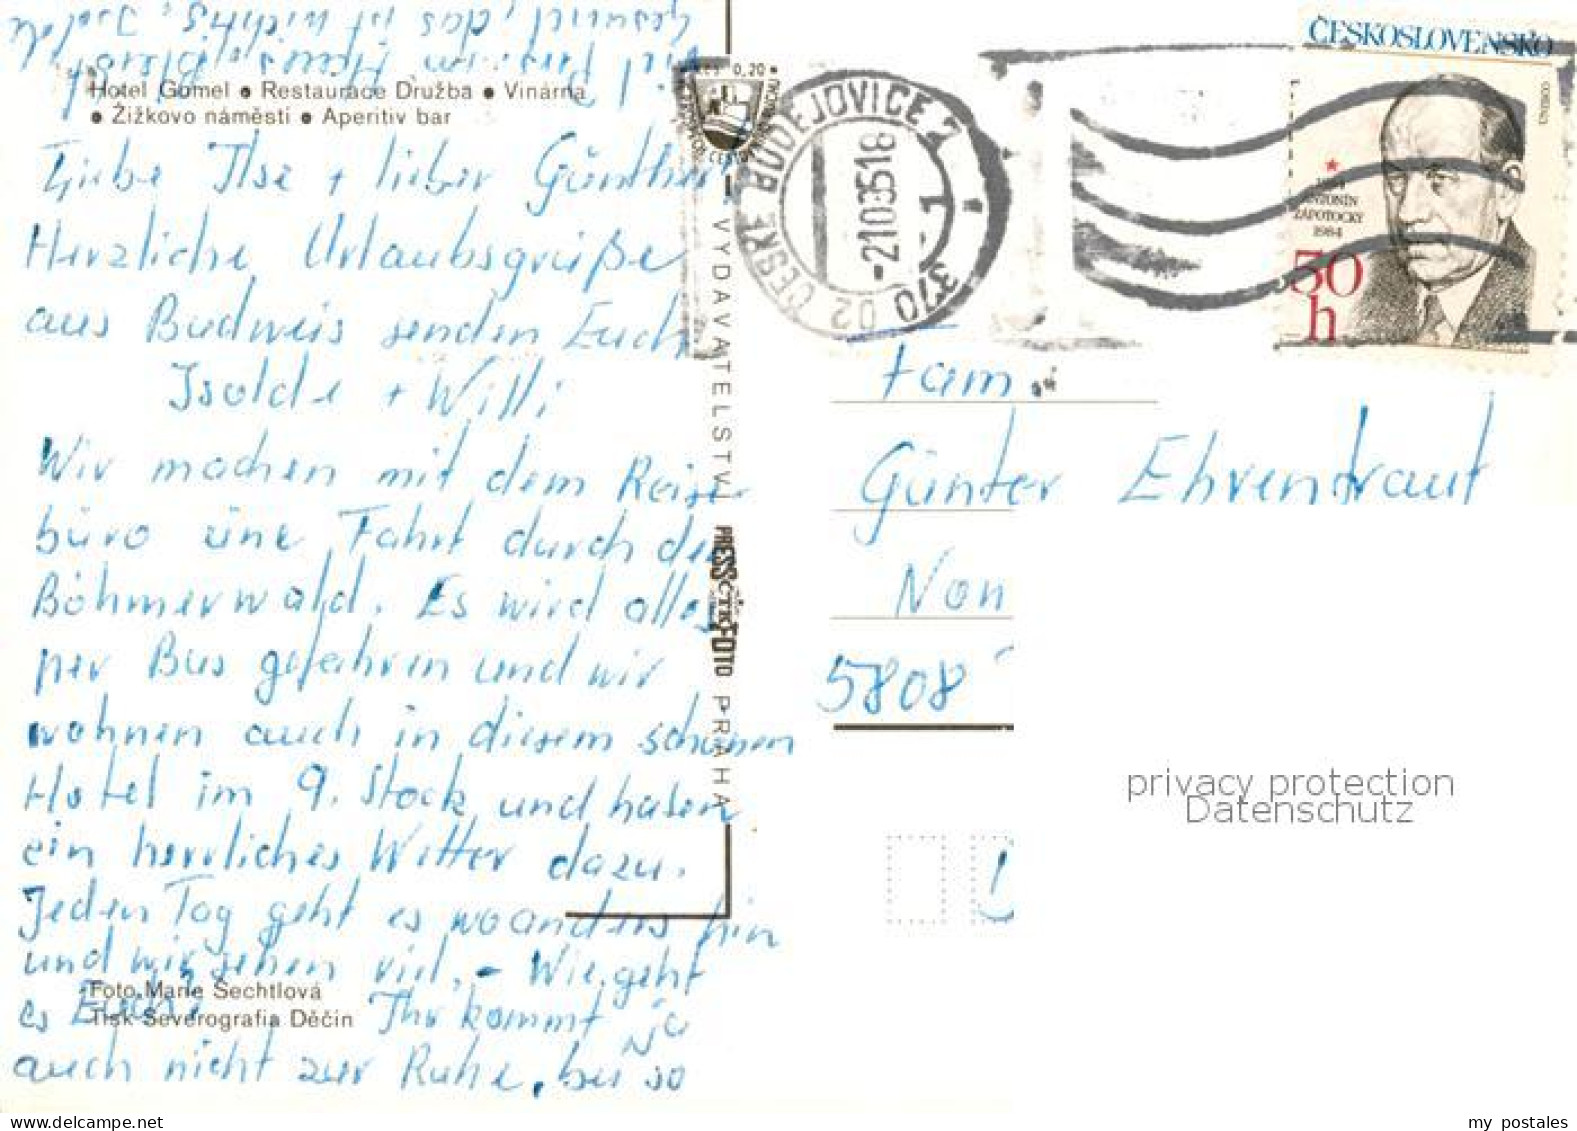 Hotel Gomel ● Restaurace Družba ● Vinárna
● Žižkovo náměstí ● Aperitiv bar
Liebe Ilse + lieber Günther!
Herzliche Urlaubsgrüße
aus Budweis senden Euch
Isolde + Willi
Wir machen mit dem Reise-
büro eine Fahrt durch den
Böhmerwald. Es wird alles
per Bus gefahren und wir
wohnen auch in diesem schönen
Hotel im 9. Stock und haben
ein herrliches Wetter dazu.
Jeden Tag geht es woanders hin
und wir sehen viel. - Wie geht
es Euch? Ihr kommt ja
auch nicht zur Ruhe, bei so
viel Personen
Gesundh. das ist wichtig. Isolde
Foto Marie Šechtlová
Tisk Severografia Děčín
VYDAVATELSTVÍ PRESSFOTO PRAHA
ČTK
Kčs 0,20
370 02 ČESKÉ BUDĚJOVICE 2
-2.10.85 18
1
ČESKOSLOVENSKO
1884
ANTONÍN
ZÁPOTOCKÝ
1984
50
h
Fam.
Günter Ehrentraut
Non
5808
privacy protection
Datenschutz
my postales